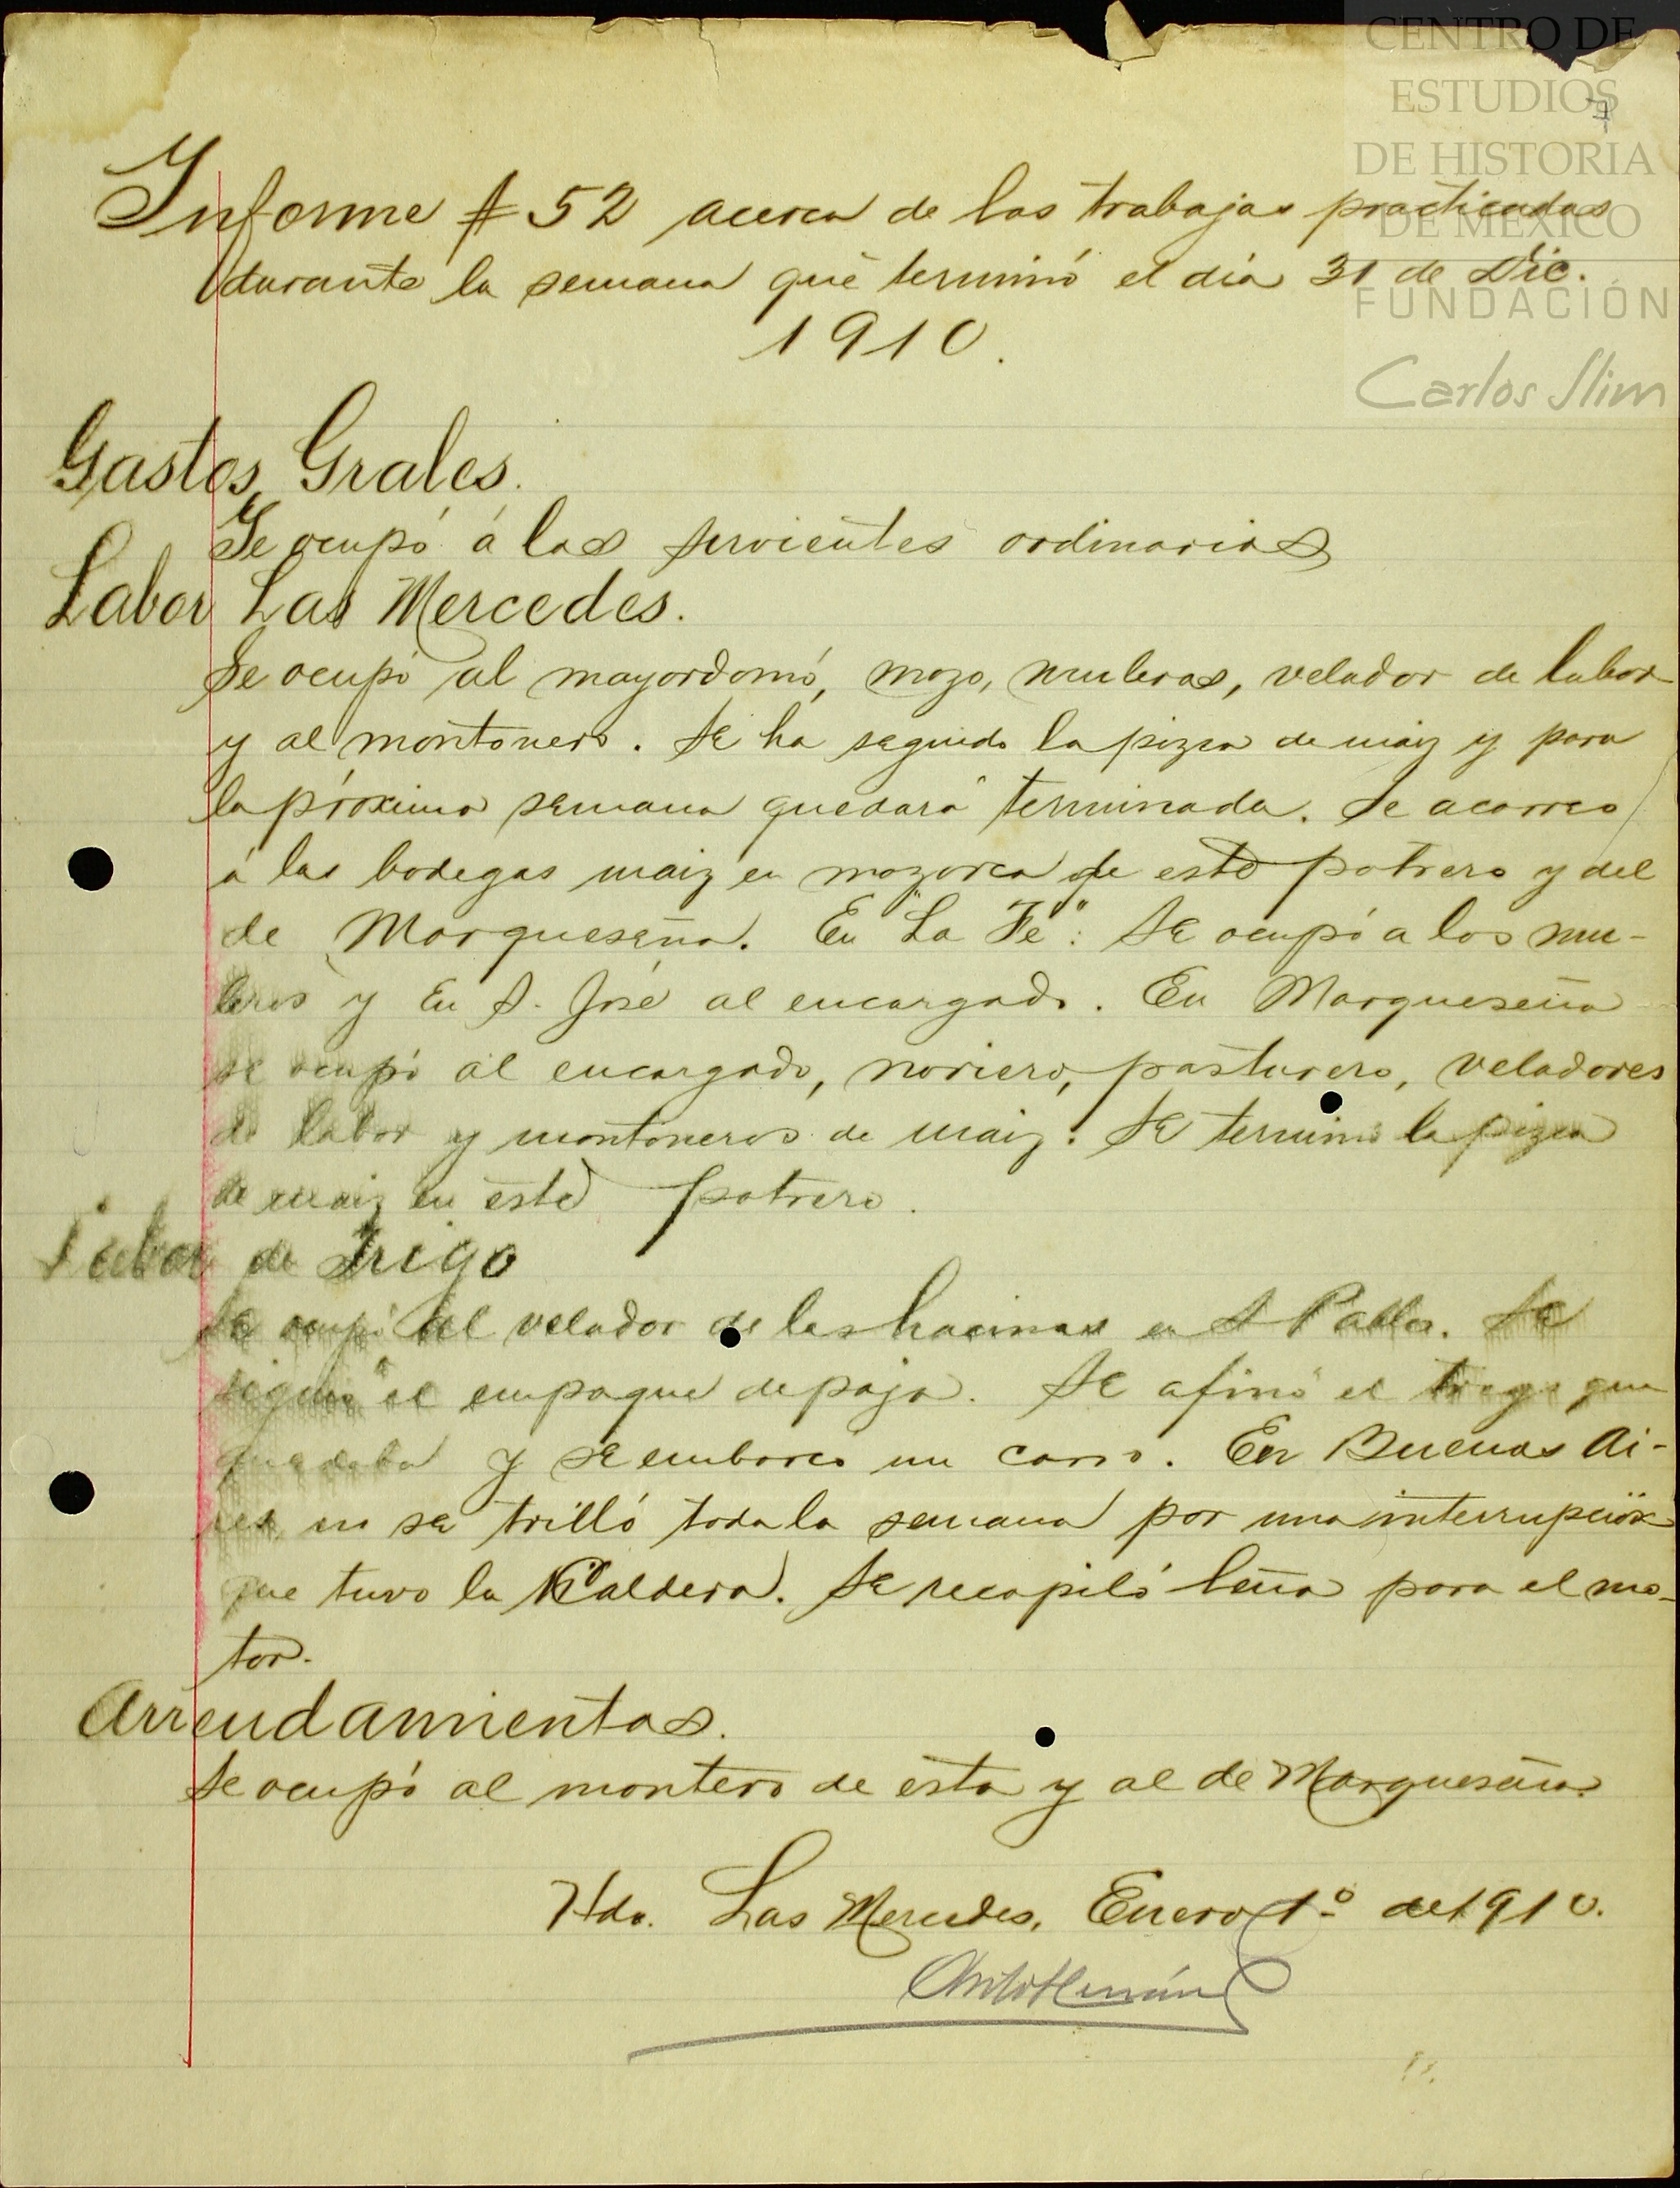 CENTRO DE
ESTUDIOS
DE HISTORIA
DE MÉXICO
FUNDACIÓN
Carlos Slim
7
Informe # 52 acerca de los trabajos practicados
durante la semana que terminó el día 31 de Dic.
1910.
Gastos Grales.
Se ocupó á los sirvientes ordinarios
Labor Las Mercedes.
Se ocupó al mayordomo, mozo, muleros, velador de labor
y al montonero. Se ha seguido la pizca de maiz y para
la próxima semana quedará terminada. Se acarreo
á las bodegas maiz en mazorca de este potrero y del
de Marqueseña. En "La Fe": Se ocupó a los mu-
leros y En S. José al encargado. En Marqueseña
se ocupó al encargado, noriero, pasturero, veladores
de labor y montoneros de maiz. Se terminó la pizca
de maiz en este potrero.
Labor de Trigo
Se ocupó al velador de las hacinas en S Pablo. Se
siguió el empaque de paja. Se afinó el trigo que
quedaba y se embarcó un carro. En Buenos Ai-
res no se trilló toda la semana por una interrupción
que tuvo la Caldera. Se recopiló leña para el mo-
tor.
Arrendamientos.
Se ocupó al montero de esta y al de Marqueseña.
Hda. Las Mercedes, Enero 1º de 1910.